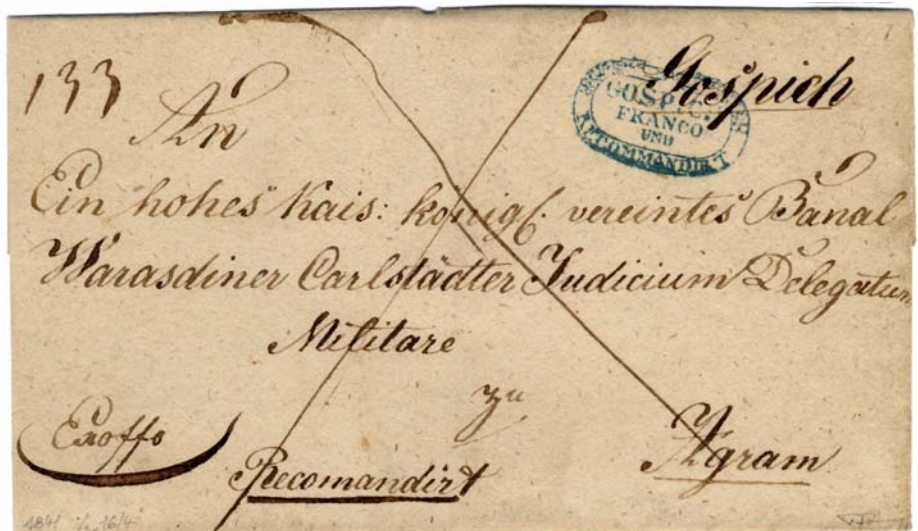 133
Gospich
GOSPIC.
FRANCO
UND
RECOMMANDIRT
An
Ein hohes Kais: königl: vereintes Banal
Warasdiner Carlstädter Judicium Delegatum
Militare
zu
Exoffo
Recomandirt
Agram
16/4